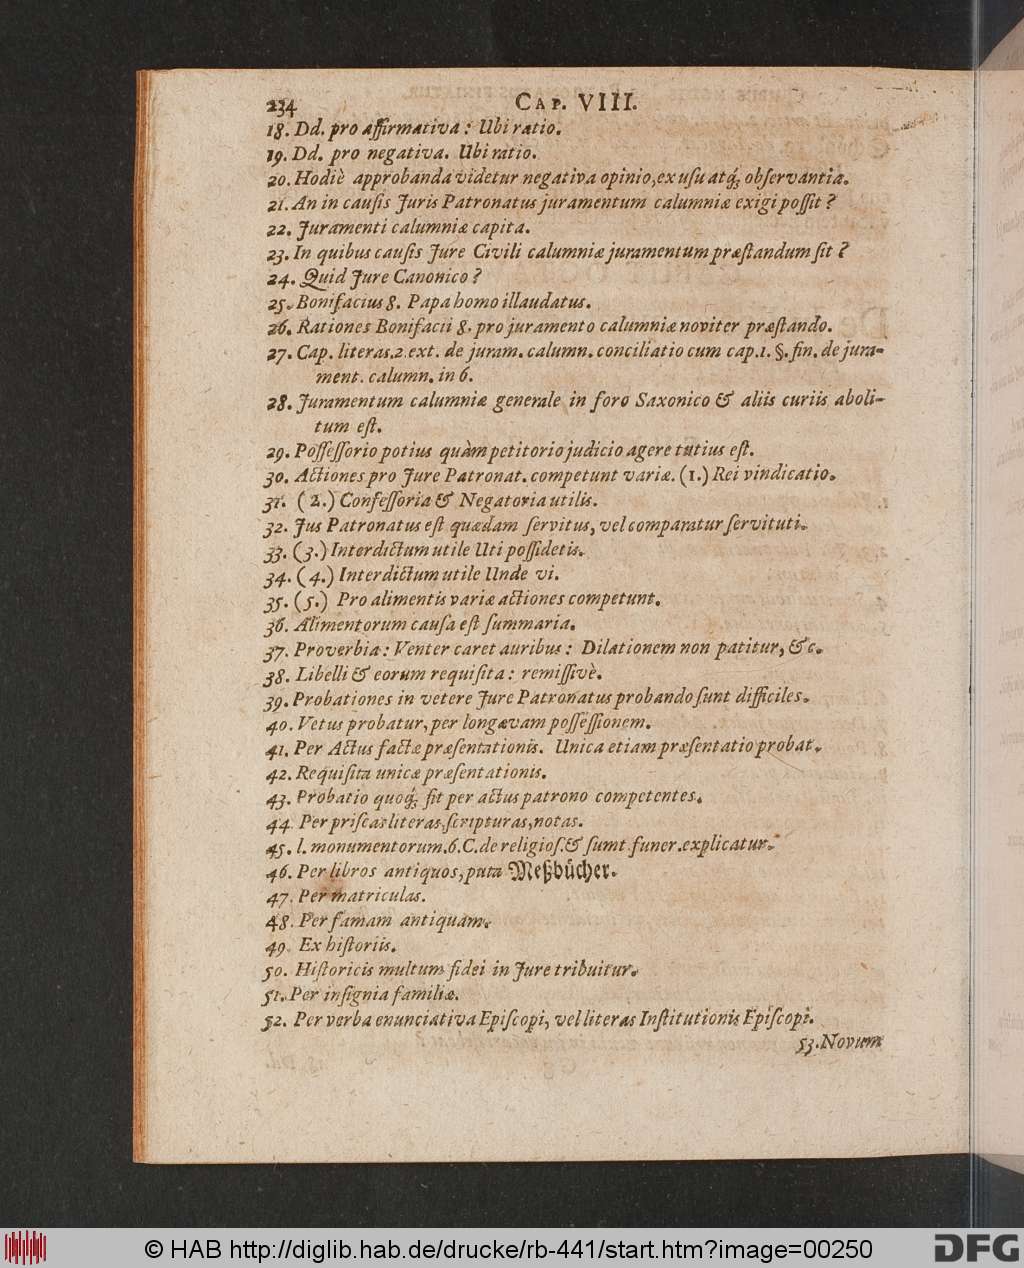 234 CAP. VIII.
18. Dd. pro affirmativa: Ubi ratio.
19. Dd. pro negativa. Ubi ratio.
20. Hodiè approbanda videtur negativa opinio, ex usu atq; observantia.
21. An in causis Juris Patronatus juramentum calumniæ exigi possit?
22. Juramenti calumniæ capita.
23. In quibus causis Jure Civili calumniæ juramentum præstandum sit?
24. Quid Jure Canonico?
25. Bonifacius 8. Papa homo illaudatus.
26. Rationes Bonifacii 8. pro juramento calumniæ noviter præstando.
27. Cap. literas.2.ext. de juram. calumn. conciliatio cum cap.1. §. fin. de jura-
ment. calumn. in 6.
28. Juramentum calumniæ generale in foro Saxonico & aliis curiis aboli-
tum est.
29. Possessorio potius quàm petitorio judicio agere tutius est.
30. Actiones pro Jure Patronat. competunt variæ. (1.) Rei vindicatio.
31. (2.) Confessoria & Negatoria utilis.
32. Jus Patronatus est quædam servitus, vel comparatur servituti.
33. (3.) Interdictum utile Uti possidetis.
34. (4.) Interdictum utile Unde vi.
35. (5.) Pro alimentis variæ actiones competunt.
36. Alimentorum causa est summaria.
37. Proverbia: Venter caret auribus: Dilationem non patitur, &c.
38. Libelli & eorum requisita: remissivè.
39. Probationes in vetere Jure Patronatus probando sunt difficiles.
40. Vetus probatur, per longævam possessionem.
41. Per Actus factæ præsentationis. Unica etiam præsentatio probat.
42. Requisita unicæ præsentationis.
43. Probatio quoq; fit per actus patrono competentes.
44. Per priscas literas, scripturas, notas.
45. l. monumentorum.6.C.de religios.& sumt funer.explicatur.
46. Per libros antiquos, puta Meßbücher.
47. Per matriculas.
48. Per famam antiquam.
49. Ex historiis.
50. Historicis multum fidei in Jure tribuitur.
51. Per insignia familiæ.
52. Per verba enunciativa Episcopi, vel literas Institutionis Episcopi.
53. Novum
© HAB http://diglib.hab.de/drucke/rb-441/start.htm?image=00250
DFG